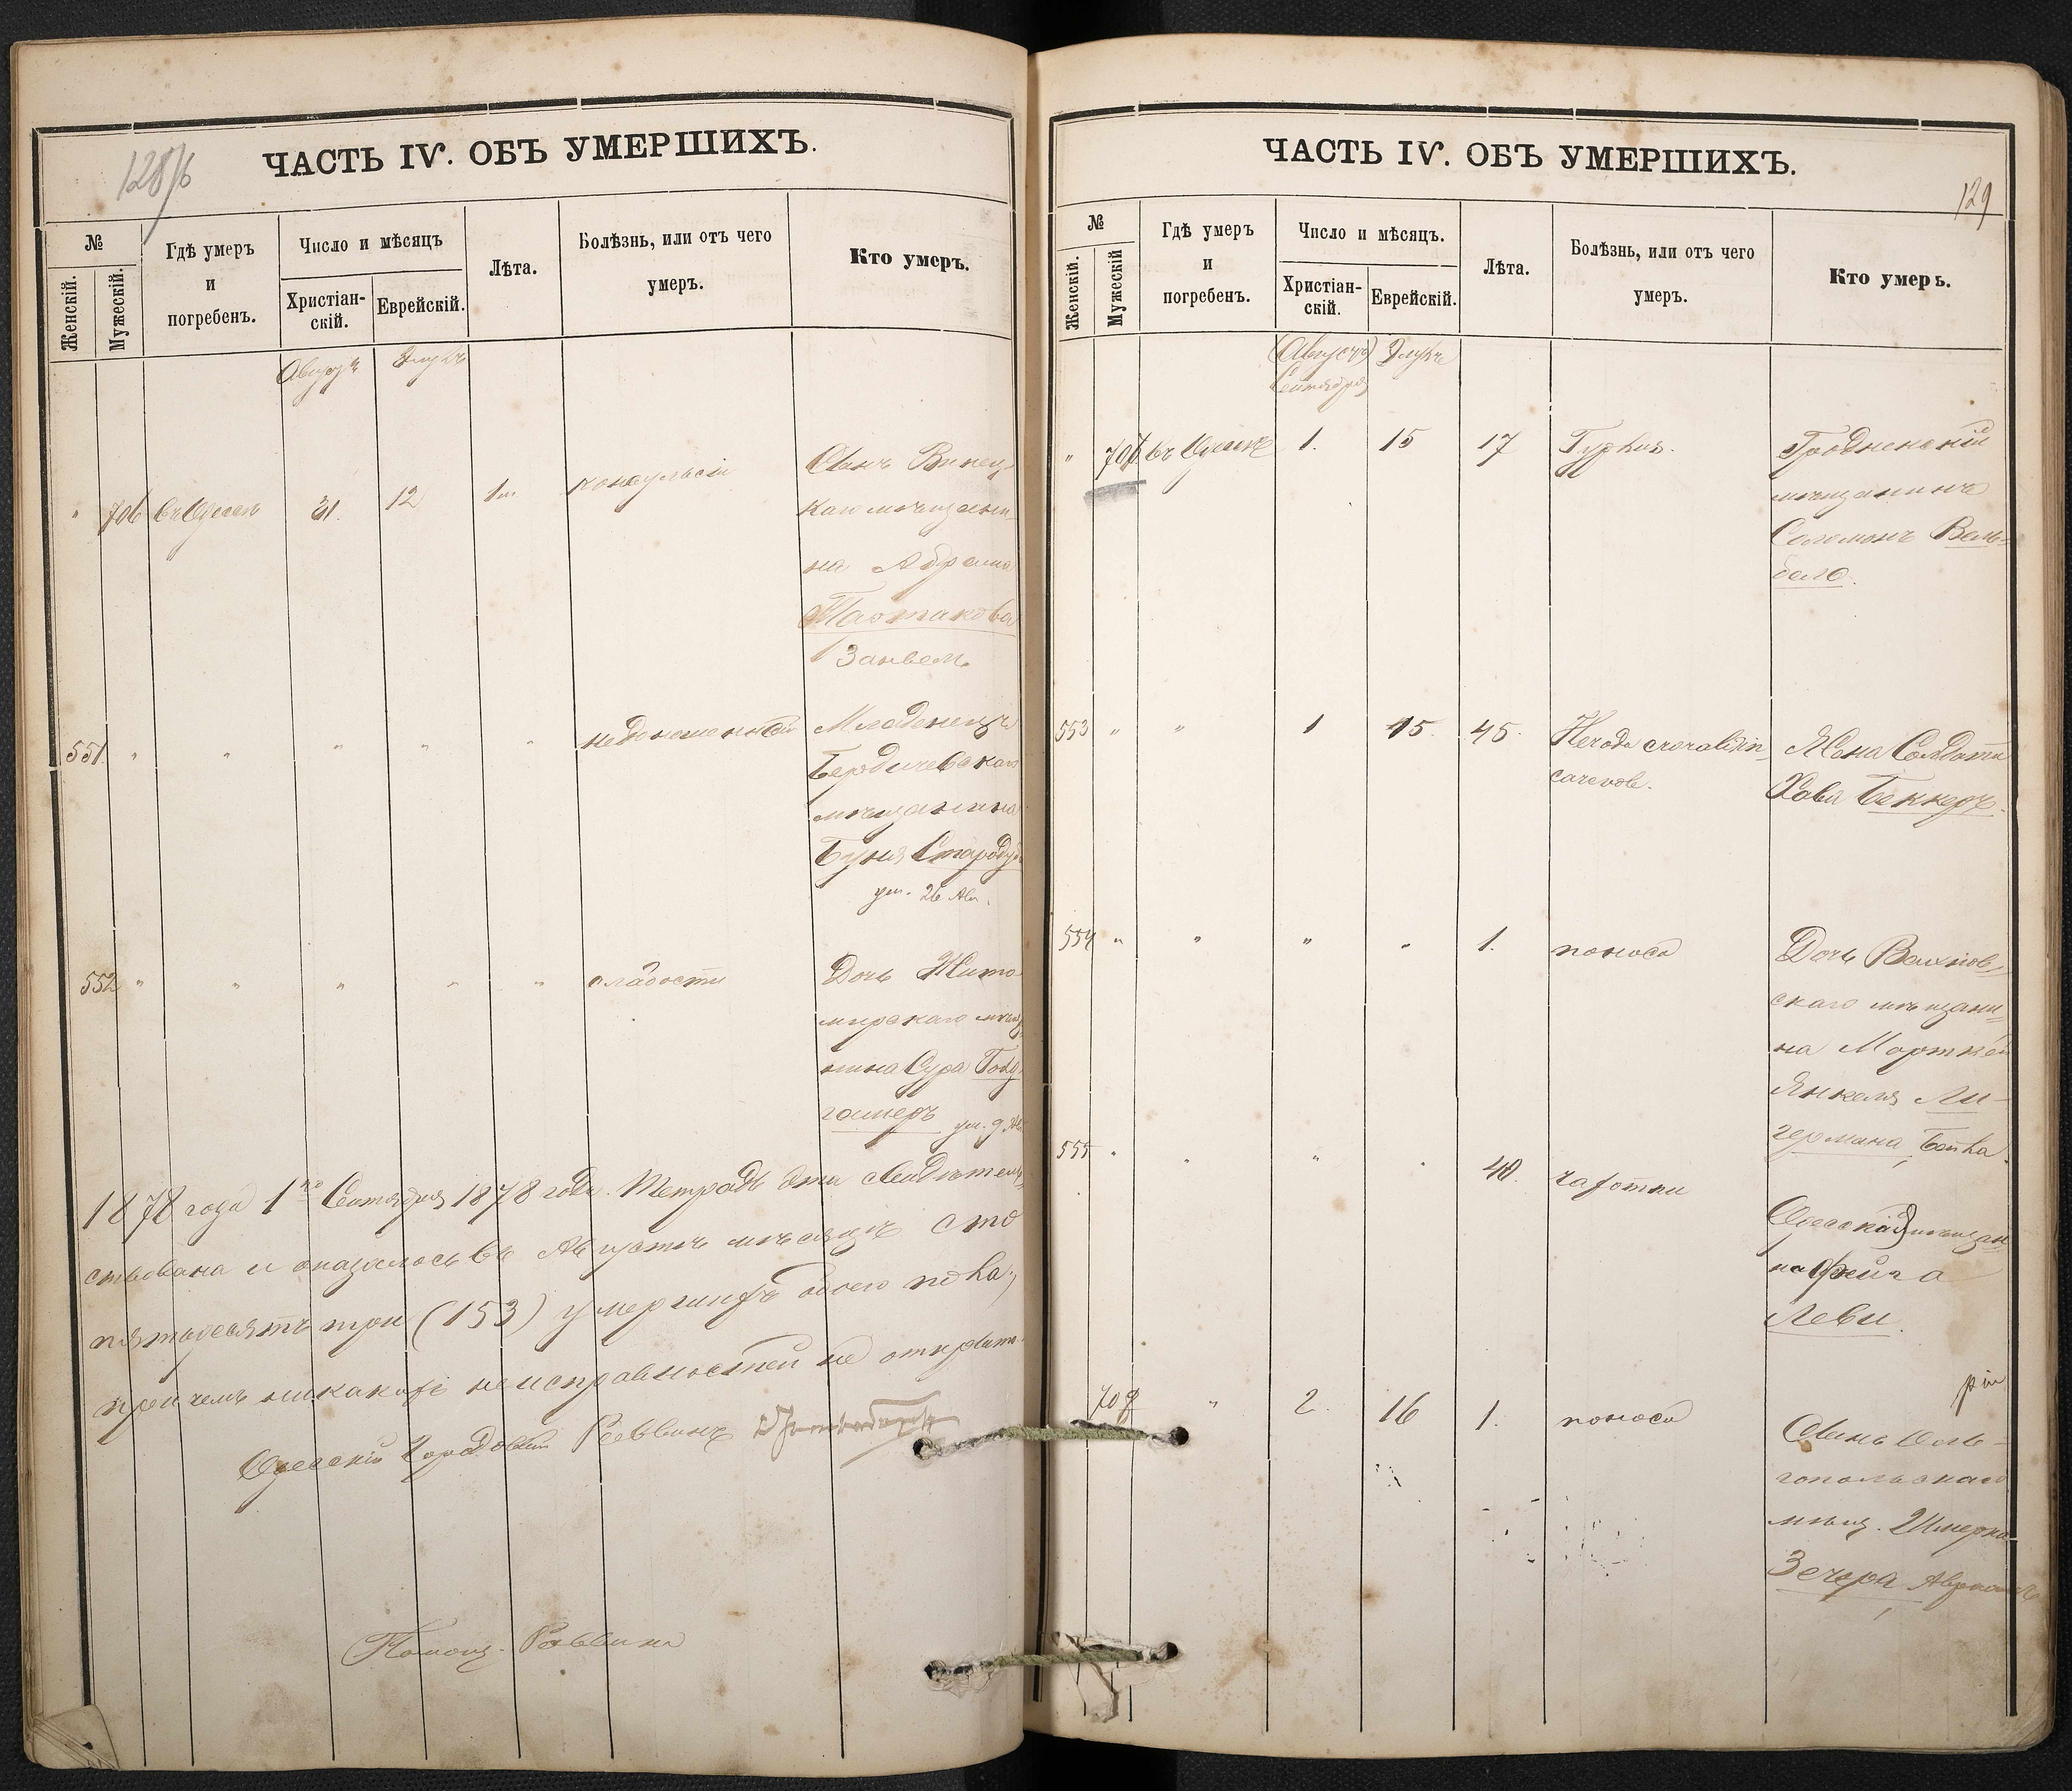 128/б
ЧАСТЬ IV. ОБЪ УМЕРШИХЪ.
№
Женскій.
Мужескій.
Гдѣ умеръ
и
погребенъ.
Число и мѣсяцъ
Христіан-
скій.
Еврейскій.
Лѣта.
Болѣзнь, или отъ чего
умеръ.
Кто умеръ.
Августъ Элулъ
" 706 въ Одессѣ 31. 12 1 конвульсіи
Сынъ Винец-
каго мѣщани-
на Абрама
Занвель
551 " " " " " недоношенный
Младенецъ
Бердичевскаго
мѣщанина
Буня Стародуб
ум. 26 Авг.
552 " " " " " слабости
Дочь Жито-
мирскаго мѣщ
нина Сура
ум. 9 Ав
1878 года 1го Сентября 1878 года. Тетрадь эта свидѣтель-
ствована и оказалось въ Августѣ мѣсяцѣ сто
пятьдесятъ три (153) умершихъ обоего пола,
при чемъ никакихъ неисправностей не открыто.
Одесскій Городовой Раввинъ
Помощ. Раввина
ЧАСТЬ IV. ОБЪ УМЕРШИХЪ.
129
№
Женскій.
Мужескій
Гдѣ умеръ
и
погребенъ.
Число и мѣсяцъ.
Христіан-
скій.
Еврейскій.
Лѣта.
Болѣзнь, или отъ чего
умеръ.
Кто умеръ.
(Августъ) Элулъ
Сентября
" 707 въ Одессѣ 1. 15 17
Гродненскій
мѣщанинъ
Соломонъ Вель-
бель.
553 " " 1 15. 45.
Жена Солдата
Хова Беккеръ.
554 " " " " 1. поноса
Дочь Вахнов-
скаго мѣщани-
на Мортко
Янкеля Ли-
германа, Бейла.
555 " " " " 40. чахотки
Одесская мѣщан-
ка Фейга
Леви.
708 " 2. 16 1. поноса
Сынъ Оль-
гопольскаго
мѣщ. Шмерка
Зечера, Авраамъ